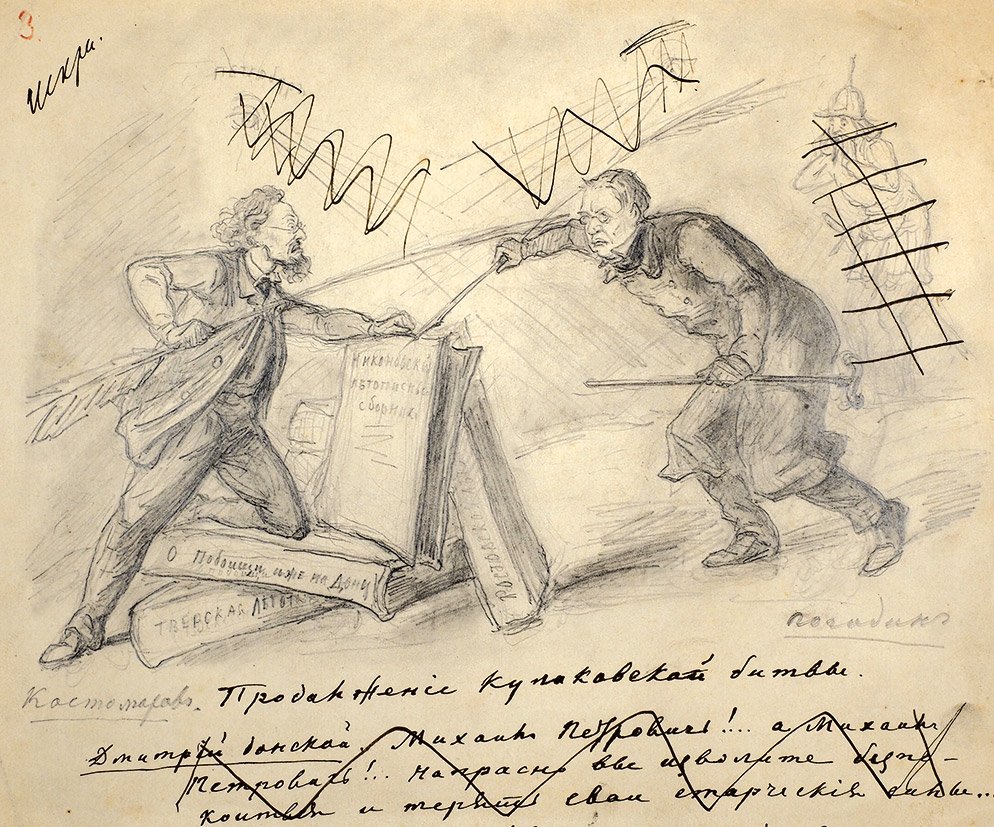 3.
Никоновскій
летописный
сборникъ
О Побоищи иже на Дону
ТВЕРСКАЯ Летопись
погодинъ
Костомаровъ.
Продолженіе Куликовской битвы.
Дмитрій Донской. Михаилъ Петровичъ!... а Михаилъ
Петровичъ!.. напрасно вы изволите безпо-
коиться и терять свои старческія силы...